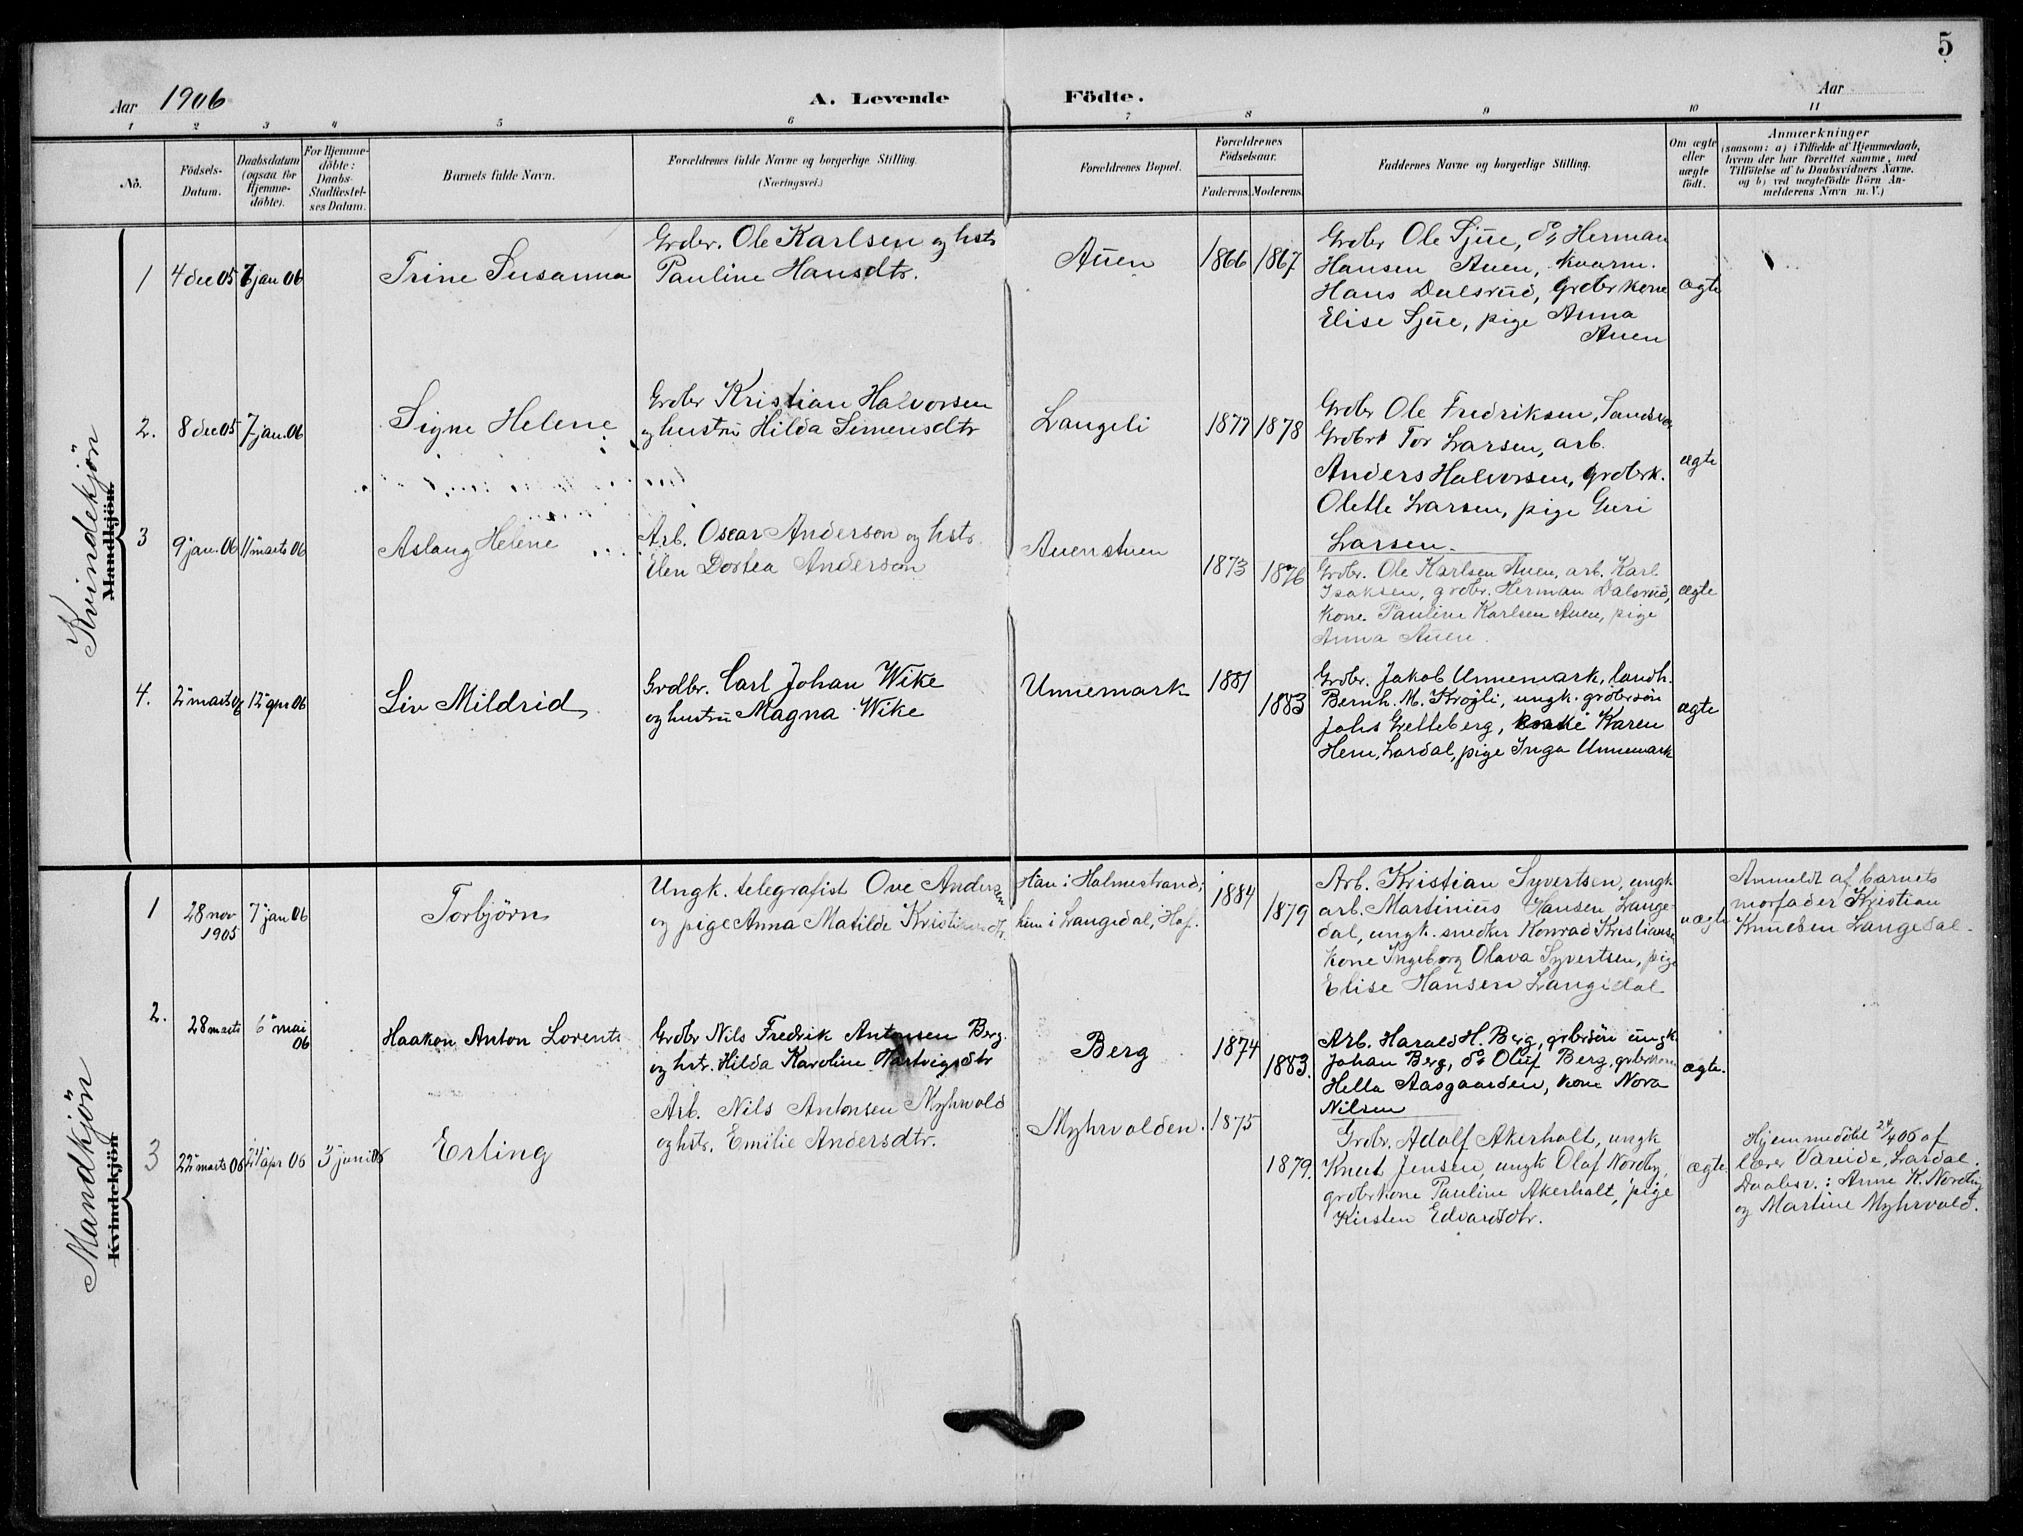 5
Aar 1906
A. Levende Födte.
Aar
1 2 3 4 5 6 7 8 9 10 11
No.
Födsels-Datum.
Daabsdatum (ogsaa for Hjemme-döbte).
For Hjemme-döbte: Daabs-Stadfæstel-ses Datum.
Barnets fulde Navn.
Forældrenes fulde Navne og borgerlige Stilling.
(Næringsvei.)
Forældrenes Bopæl.
Forældrenes Födselsaar.
Faderens. Moderens.
Faddernes Navne og borgerlige Stilling.
Om ægte eller uægte födt.
Anmærkninger
(saasom: a) i Tilfælde af Hjemmedaab,
hvem der har forrettet samme, med
Tilföielse af to Daabsvidners Navne.
og b) ved uægtefödte Börn An-
melderens Navn m. V.)
Kvindekjön
Mandkjön.
1 4 dec 05 7 jan 06
Trine Susanna
Grdbr. Ole Karlsen og hstr
Pauline Hansdtr.
Auen
1866 1867
Grdbr Ole Sjue, do Herman
Hansen Auen,
Hans Dalsrud, grdbrkone
Elise Sjue, pige Anna
Auen
ægte
2. 8 dec 05 7 jan. 06
Signe Helene
Grdbr Kristian Halvorsen
og hustru Hilda Simensdtr
Langeli
1877 1878
Grdbr Ole Fredriksen,
Grdbr Tor Larsen, arb.
Anders Halvorsen, grdbrk.
Olette Larsen, pige Guri
Larsen.
ægte
3 9 jan. 06 11 marts 06
Aslaug Helene
Arb. Oscar Anderson og hstr.
Elen Dortea Anderson
Auenstuen
1873 1876
Grdbr. Ole Karlsen Auen, arb. Karl
Isaksen, grdbr. Herman Dalsrud,
kone Pauline Karlsen Auen, pige
Anna Auen.
ægte
4. 2 marts 06 12 apr 06
Liv Mildrid
Grdbr. Carl Johan Wike
og hustru Magna Wike
Unnemark
1881 1883
Grdbr. Jakob Unnemark, landh.
Bernh. M. Krogli, ungk. grdbrsön
Johs Gretteberg, Karen
Hem, Lardal, pige Inga Unnemark
ægte
Mandkjön
Kvindekjön
1 28 nov 1905 7 jan 06
Torbjörn
Ungk. telegrafist Ove Andersen
og pige Anna Matilde Kristiansdtr.
Han i Holmestrand;
hun i Langedal, Hof.
1884 1879
Arb. Kristian Syvertsen, ungk
arb. Martinius Hansen Lange-
dal, ungk. snedker Konrad Kristianse
kone Ingeborg Olava Syvertsen, pige
Elise Hansen Langedal
uægte
Anmeldt af barnets
morfader Kristian
Knudsen Langedal.
2. 28 marts 6 mai 06
Haakon Anton Lorents
Grdbr Nils Fredrik Antonsen Berg
og hstr. Hilda Karoline Hartvigsdtr
Berg
1874 1883.
Arb. Harald H. Berg, grdbrsön ungk.
Johan Berg, do Oluf Berg, grdbrkone
Hella Aasgaarden, kone Nora
Nilsen
ægte.
3 22 marts 06 24 apr 06 3 juni 06
Erling
Arb. Nils Antonsen Myhrvold
og hstr. Emilie Andersdtr.
Myhrvolden.
1875 1879.
Grdbr. Adolf Akerholt, ungk
Knut Jensen, ungk Olaf Nordby,
grdbrkone Pauline Akerholt, pige
Kirsten Edvardsdtr.
ægte
Hjemmedöbt 24/4 06 af
lærer Vareide, Lardal.
Daabsv.: Anne K. Nordby
og Martine Myhrvold.